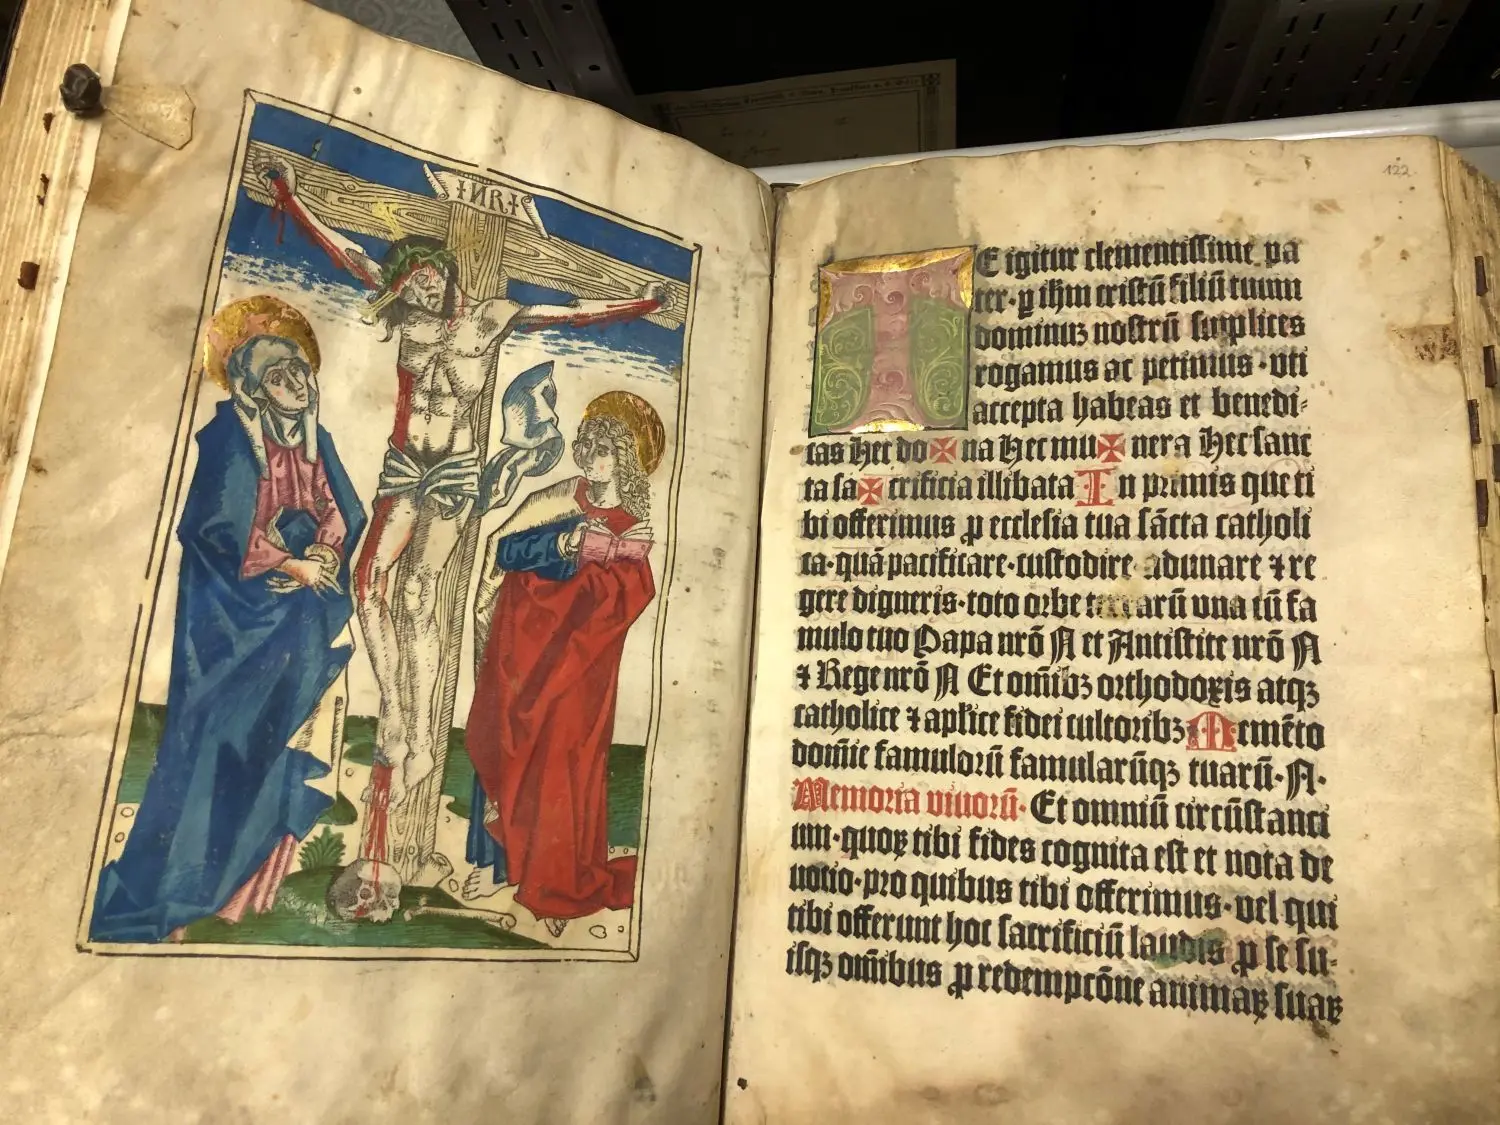 INRI
122
TE igitur clementissime pa
ter· ꝑ ihm̄ cristū filiū tuum
dominuꝫ nostrū supplices
rogamus ac petimus · vti
accepta habeas et benedi⸗
cas Hec do✠na Hec mu✠nera Hec sanc
ta sa✠crificia illibata In primis que ti
bi offerimus ꝓ ecclesia tua sācta catholi
ca· quā pacificare· custodire adunare ⁊ re
gere digneris· toto orbe terrarū vna cū fa
mulo tuo Papa nrō N et Antistite nrō N
⁊ Rege nrō N Et om̄ibꝫ orthodoxis atqꝫ
catholice ⁊ aplīce fidei cultoribꝫ Memēto
domīe famulorū famularūqꝫ tuarū· N·
Memoria viuorū· Et omniū circūstanci
um· quoꝝ tibi fides cognita est et nota de
uotio· pro quibus tibi offerimus· vel qui
tibi offerunt hoc sacrificiū laudis ꝓ se su⸗
isqꝫ om̄ibus ꝓ redempcōne animaꝝ suaꝝ